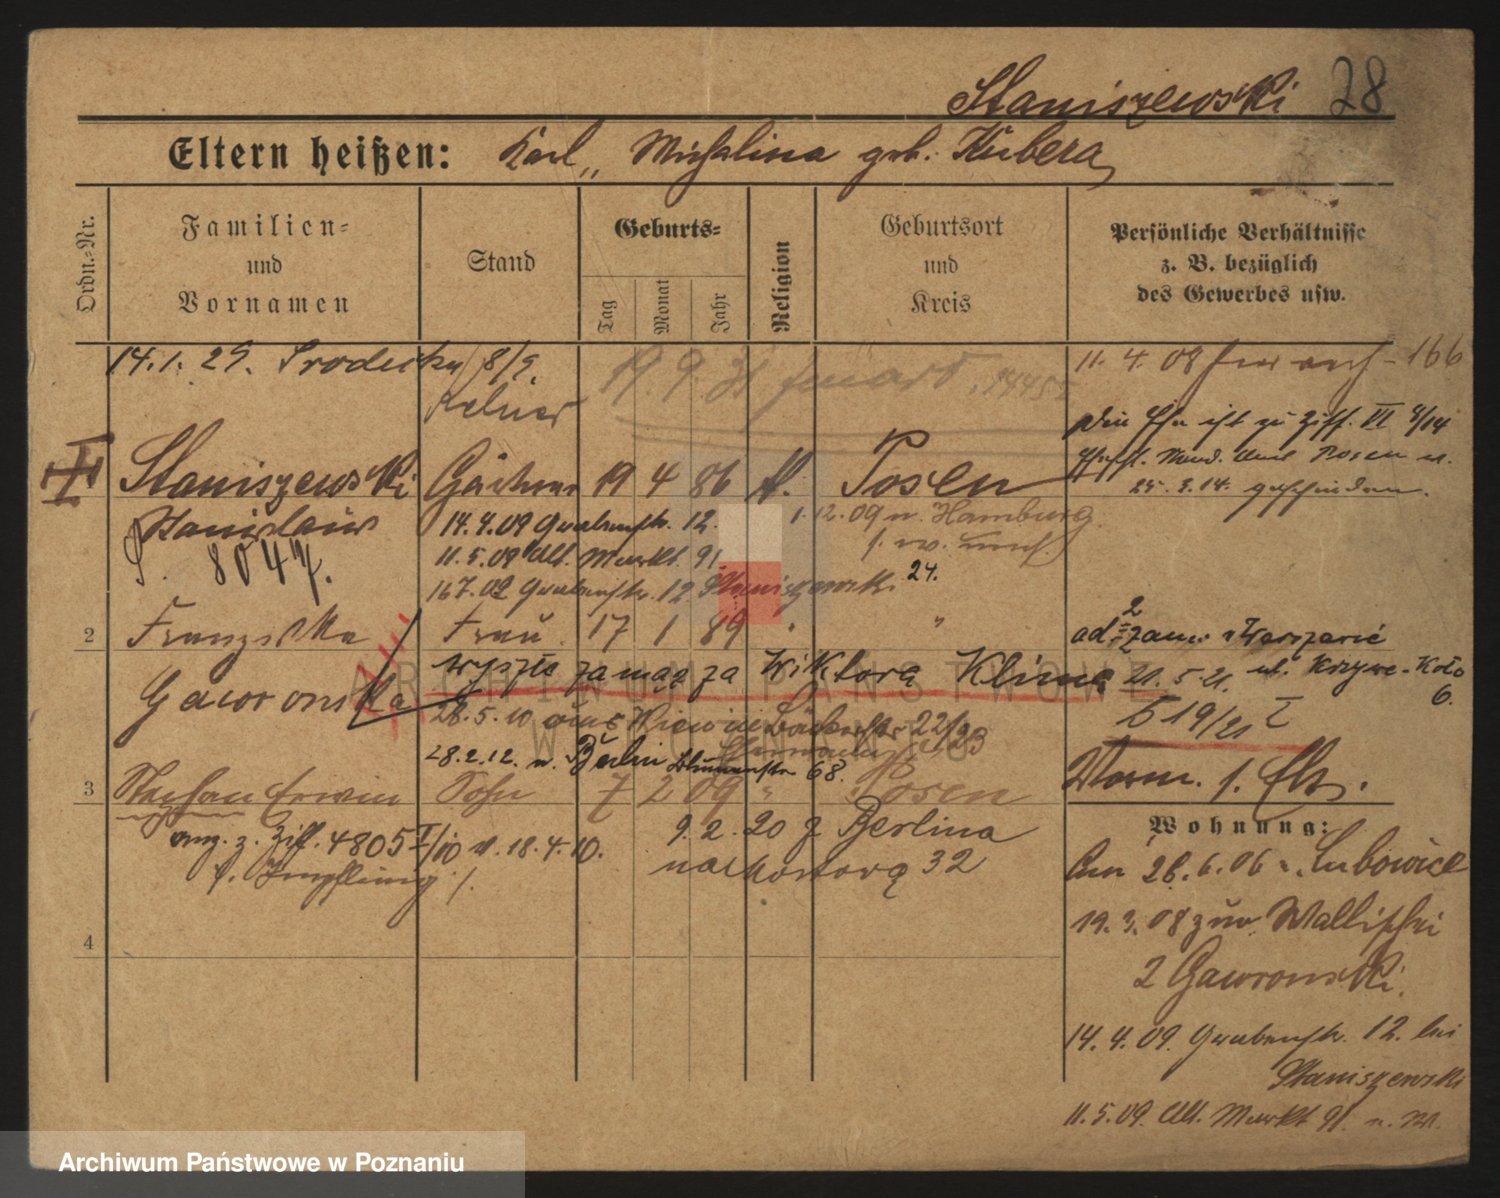 Staniszewski 28
Eltern heißen: Karl, Michalina geb. Kubera
Ordn.-Nr.
Familien-
und
Vornamen
Stand
Geburts-
Tag
Monat
Jahr
Religion
Geburtsort
und
Kreis
Persönliche Verhältnisse
z. B. bezüglich
des Gewerbes usw.
14.1.29. Srodecka 8/9.
Kelner
19. 9. 31
11. 4. 08 166
Die Ehe ist zu Ziff. VI 4/14
Posen u.
25.3.14. geschieden.
I
Staniszewski Gärtner 19 4 86 k. Posen
Stanislaus
14.4.09 Grabenstr. 12.
1.12.09 n. Hamburg
11.5.09 Alt. Markt. 91
8047.
16.7.09 Grabenstr. 12 Staniszewski 24.
2 Franziska Frau 17 1 89 " "
Gaworonska
wyszła zamąz za Wiktora Klima 21.5.21. ul. Krzywe-Koło
6.
ad 2 zam. Warszawie
E 19/21 I
28.5.10 22/23
28.2.12. n. Berlin Blumenstr 68.
3 Stephan Erwin Sohn 7 2 09 " Posen
ang. z. Ziff. 4805 I/10 v. 18.4.10.
f. Impfling
9.2.20 z Berlina
na 32
4
Worm. s. Eltr.
Wohnung:
Am 26.6.06 n. Lubowice
19.3.08 zur. Wallischei
2 Gaworonski.
14.4.09. Grabenstr. 12. bei
Staniszewski
11.5.09. Alt. Markt 91 n. M.
ARCHIWUM PAŃSTWOWE
W POZNANIU
Archiwum Państwowe w Poznaniu